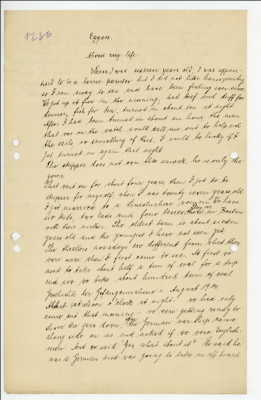 1286
Eggers.
About my life.
When I was sixteen year old, I was appren-
tised to be a horse but I did not like
so I ran away to sea and have been fishing ever since.
To get up at five in the morning, had beef and duff for
dinner, fish for tea, turned in about ten at night.
After I had been turned in about an hour the man
that was on the watch, would call me out to help
the sails or something of that. I would be lucky if I
got turned in again that night.
The skipper does not own the smack, he is only the
That went on for about four years, then I got to be
skipper for myself, when I was twenty seven years old
I got married to a Lincolnshire woman. We have
six kids, two lads and four lasses. They live in Boston
with their mother. The oldest been is about sixteen
years old and the youngest I have not seen yet.
The trawlers nowadays are different from what they
were when I first came to sea. At first we
used to take about half a ton of coal for a trip
and now we take about hundred tons of coal
Geschichte der Gefangennahme: August 1914
About at eleven o'clock at night we had only
come out that morning - we were getting ready to
shoot the gear down, the German war ship came
along side on us and asked if we were English-
men. And we said "Yes, what about it". He said he
was a German and was going to take us off board